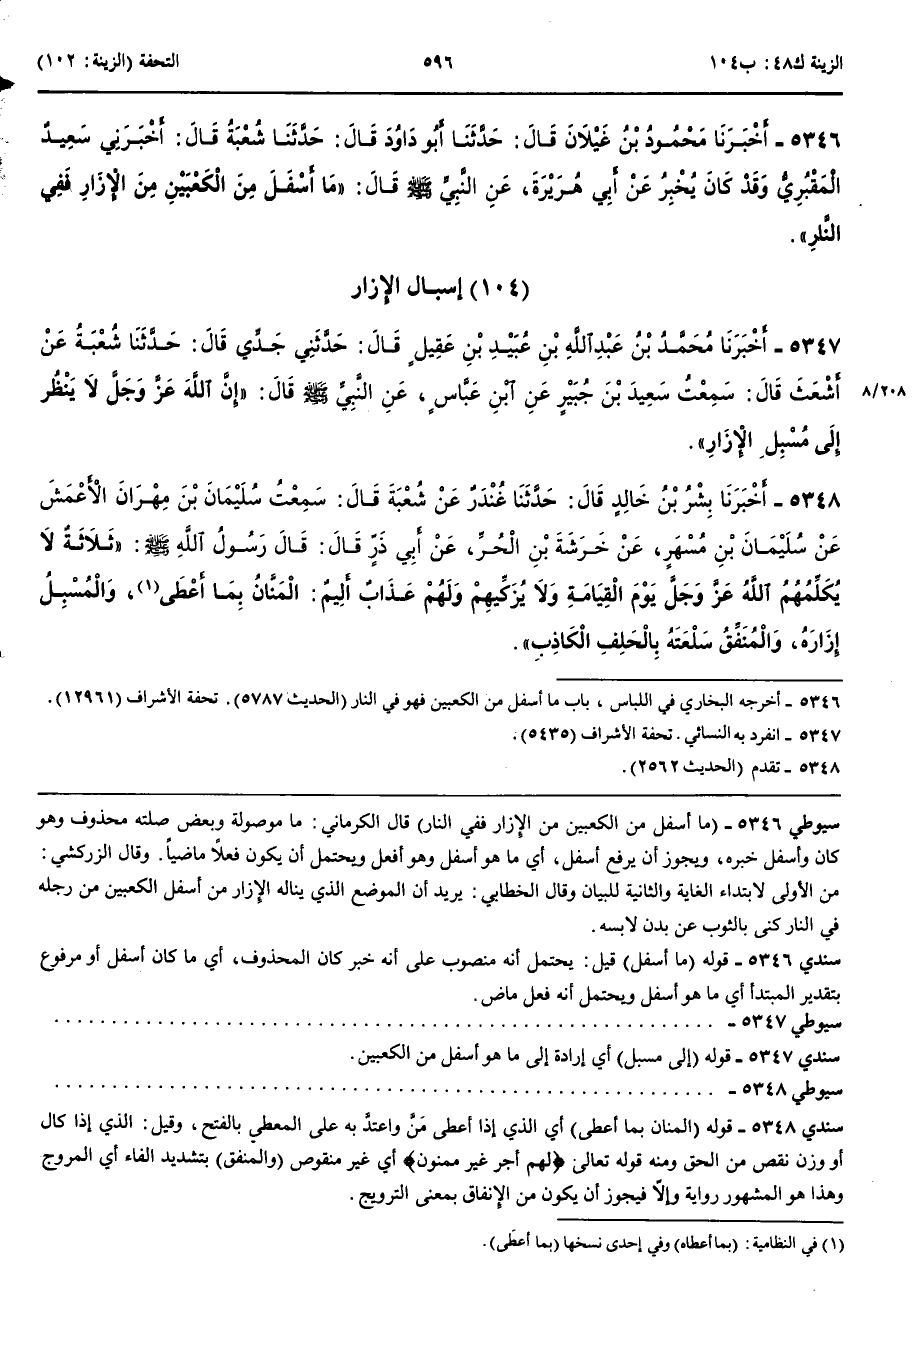 الزينة ك٤٨: ب١٠٤ ٥٩٦ التحفة (الزينة: ١٠٢)
٥٣٤٦ ـ أَخْبَـرَنَا مَحْمُـودُ بْنُ غَيْلَانَ قَـالَ: حَدَّثَنَـا أَبُو دَاوُدَ قَـالَ: حَدَّثَنَـا شُعْبَةُ قَـالَ: أَخْبَرَنِي سَعِيـدٌ
الْمَقْبُرِيُّ وَقَدْ كَانَ يُخْبِرُ عَنْ أَبِي هُـرَيْرَةَ، عَنِ النَّبِيِّ ﷺ قَـالَ: «مَا أَسْفَـلَ مِنَ الْكَعْبَيْنِ مِنَ الْإِزَارِ فَفِي
النَّارِ».
(١٠٤) إسبـال الإزار
٥٣٤٧ ـ أَخْبَرَنَا مُحَمَّـدُ بْنُ عَبْدِاللَّهِ بْنِ عُبَيْـدِ بْنِ عَقِيلٍ قَـالَ: حَدَّثَنِي جَدِّي قَالَ: حَـدَّثَنَا شُعْبَـةُ عَنْ
أَشْعَثَ قَالَ: سَمِعْتُ سَعِيدَ بْنَ جُبَيْرٍ عَنِ ابْنِ عَبَّاسٍ، عَنِ النَّبِيِّ ﷺ قَالَ: «إِنَّ اللَّهَ عَزَّ وَجَلَّ لَا يَنْظُرُ ٨/٢٠٨
إِلَى مُسْبِلِ الْإِزَارِ».
٥٣٤٨ ـ أَخْبَرَنَا بِشْرُ بْنُ خَالِدٍ قَالَ: حَدَّثَنَا غُنْدَرٌ عَنْ شُعْبَةَ قَـالَ: سَمِعْتُ سُلَيْمَانَ بْنَ مِهْـرَانَ الْأَعْمَشَ
عَنْ سُلَيْمَـانَ بْنِ مُسْهِرٍ، عَنْ خَرَشَةَ بْنِ الْحُـرِّ، عَنْ أَبِي ذَرٍّ قَـالَ: قَـالَ رَسُـولُ اللَّهِ ﷺ: «ثَـلَاثَـةٌ لَا
يُكَلِّمُهُمُ اللَّهُ عَزَّ وَجَلَّ يَوْمَ الْقِيَامَةِ وَلَا يُزَكِّيهِمْ وَلَهُمْ عَـذَابٌ أَلِيمٌ: الْمَنَّانُ بِمَـا أَعْطَى(١)، وَالْمُسْبِـلُ
إِزَارَهُ، وَالْمُنَفِّقُ سِلْعَتَهُ بِالْحَلِفِ الْكَاذِبِ».
٥٣٤٦ ـ أخرجه البخاري في اللباس، باب ما أسفل من الكعبين فهو في النار (الحديث ٥٧٨٧). تحفة الأشراف (١٢٩٦١).
٥٣٤٧ ـ انفرد به النسائي. تحفة الأشراف (٥٤٣٥).
٥٣٤٨ ـ تقدم (الحديث ٢٥٦٢).
سيوطي ٥٣٤٦ ـ (ما أسفل من الكعبين من الإزار ففي النار) قال الكرماني: ما موصولة وبعض صلته محذوف وهو
كان وأسفل خبره، ويجوز أن يرفع أسفل، أي ما هو أسفل وهو أفعل ويحتمل أن يكون فعلًا ماضياً. وقال الزركشي:
من الأولى لابتداء الغاية والثانية للبيان وقال الخطابي: يريد أن الموضع الذي يناله الإزار من أسفل الكعبين من رجله
في النار كنى بالثوب عن بدن لابسه.
سندي ٥٣٤٦ ـ قوله (ما أسفل) قيل: يحتمل أنه منصوب على أنه خبر كان المحذوف، أي ما كان أسفل أو مرفوع
بتقدير المبتدأ أي ما هو أسفل ويحتمل أنه فعل ماض.
سيوطي ٥٣٤٧ ـ . . . . . . . . . . . . . . . . . . . . . . . . . . . . . .
سندي ٥٣٤٧ ـ قوله (إلى مسبل) أي إرادة إلى ما هو أسفل من الكعبين.
سيوطي ٥٣٤٨ ـ . . . . . . . . . . . . . . . . . . . . . . . . . . . . . .
سندي ٥٣٤٨ ـ قوله (المنان بما أعطى) أي الذي إذا أعطى مَنَّ واعتدَّ به على المعطي بالفتح، وقيل: الذي إذا كال
أو وزن نقص من الحق ومنه قوله تعالىٰ ﴿لهم أجر غير ممنون﴾ أي غير منقوص (والمنفق) بتشديد الفاء أي المروج
وهذا هو المشهور رواية وإلّا فيجوز أن يكون من الإنفاق بمعنى الترويج.
(١) في النظامية: (بما أعطاه) وفي إحدى نسخها (بما أعطَى).